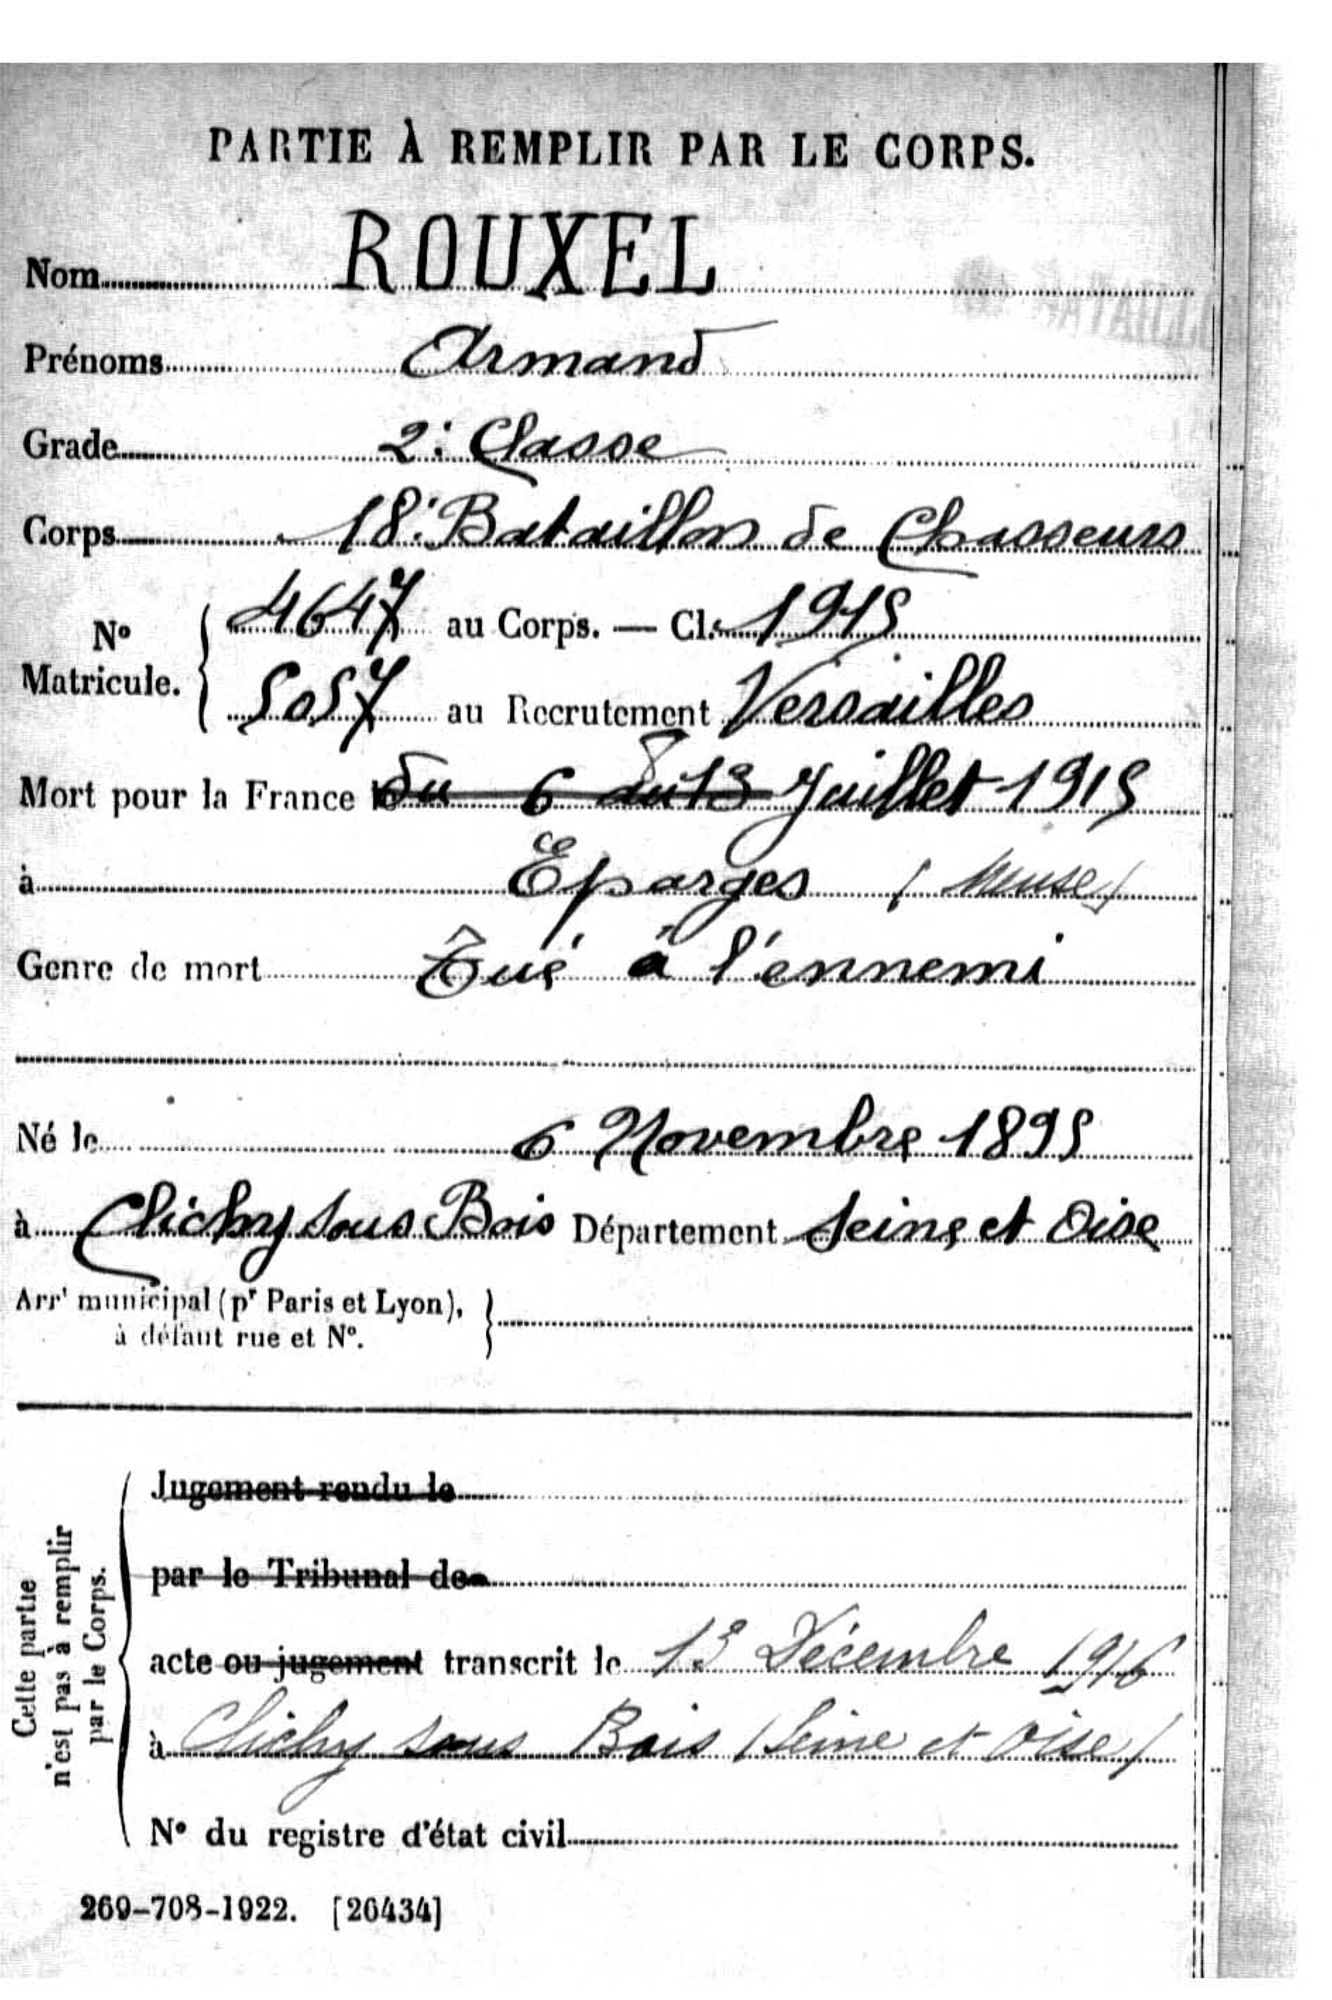 PARTIE À REMPLIR PAR LE CORPS.
Nom ROUXEL
Prénoms Armand
Grade 2e Classe
Corps 18e Bataillon de Chasseurs
No Matricule. { 4647 au Corps. — Cl. 1915
5057 au Recrutement Versailles
Mort pour la France le du 6 au 13 Juillet 1915
8
à Eparges (Meuse)
Genre de mort Tué à l'ennemi
Né le 6 Novembre 1895
à Clichy sous Bois Département Seine et Oise
Arrt municipal (pr Paris et Lyon), }
à défaut rue et No.
Cette partie n'est pas à remplir par le Corps.
Jugement rendu le
par le Tribunal de
acte ou jugement transcrit le 13 Décembre 1916
à Clichy sous Bois (Seine et Oise)
No du registre d'état civil
269-708-1922. [26434]